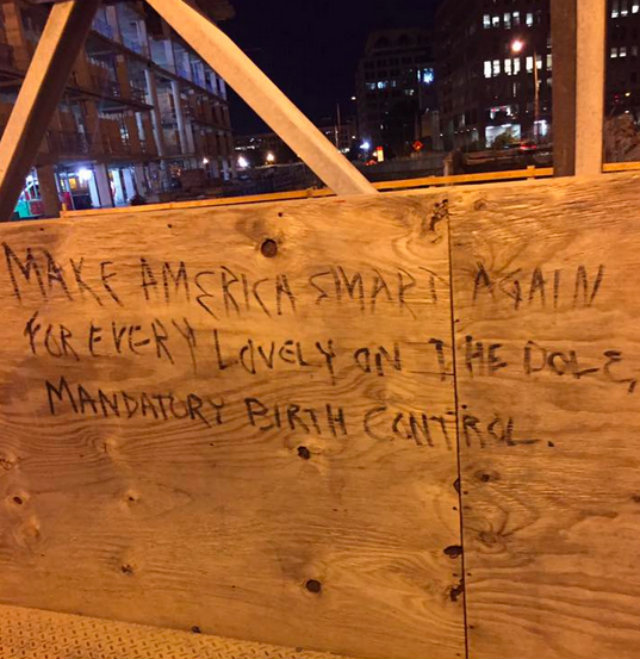 MAKE AMERICA SMART AGAIN
FOR EVERY LOVELY ON THE DOLE,
MANDATORY BIRTH CONTROL.